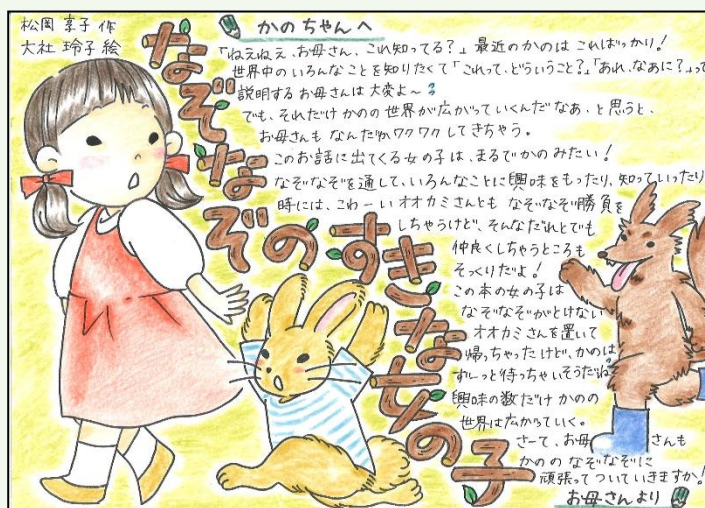 松岡 享子 作
大社 玲子 絵
なぞなぞのすきな女の子
かのちゃんへ
「ねえねえ、お母さん、これ知ってる?」最近のかのは こればっかり!
世界中のいろんなことを知りたくて「これって、どういうこと?」「あれ、なあに?」って
説明するお母さんは大変よ〜
でも、それだけ かのの世界が広がっていくんだなあ、と思うと、
お母さんも なんだかワクワクしてきちゃう。
このお話に出てくる女の子は、まるでかのみたい!
なぞなぞを通して、いろんなことに興味をもったり、知っていったり
時には、こわーいオオカミさんとも なぞなぞ勝負を
しちゃうけど、そんなだれとでも
仲良くしちゃうところも
そっくりだよ!
この本の女の子は
なぞなぞがとけない
オオカミさんを置いて
帰っちゃったけど、かのは
ずーっと待っちゃいそうだね
興味の数だけ かのの
世界は広がっていく。
さーて、お母さんも
かののなぞなぞに
頑張ってついていきますか!
お母さんより